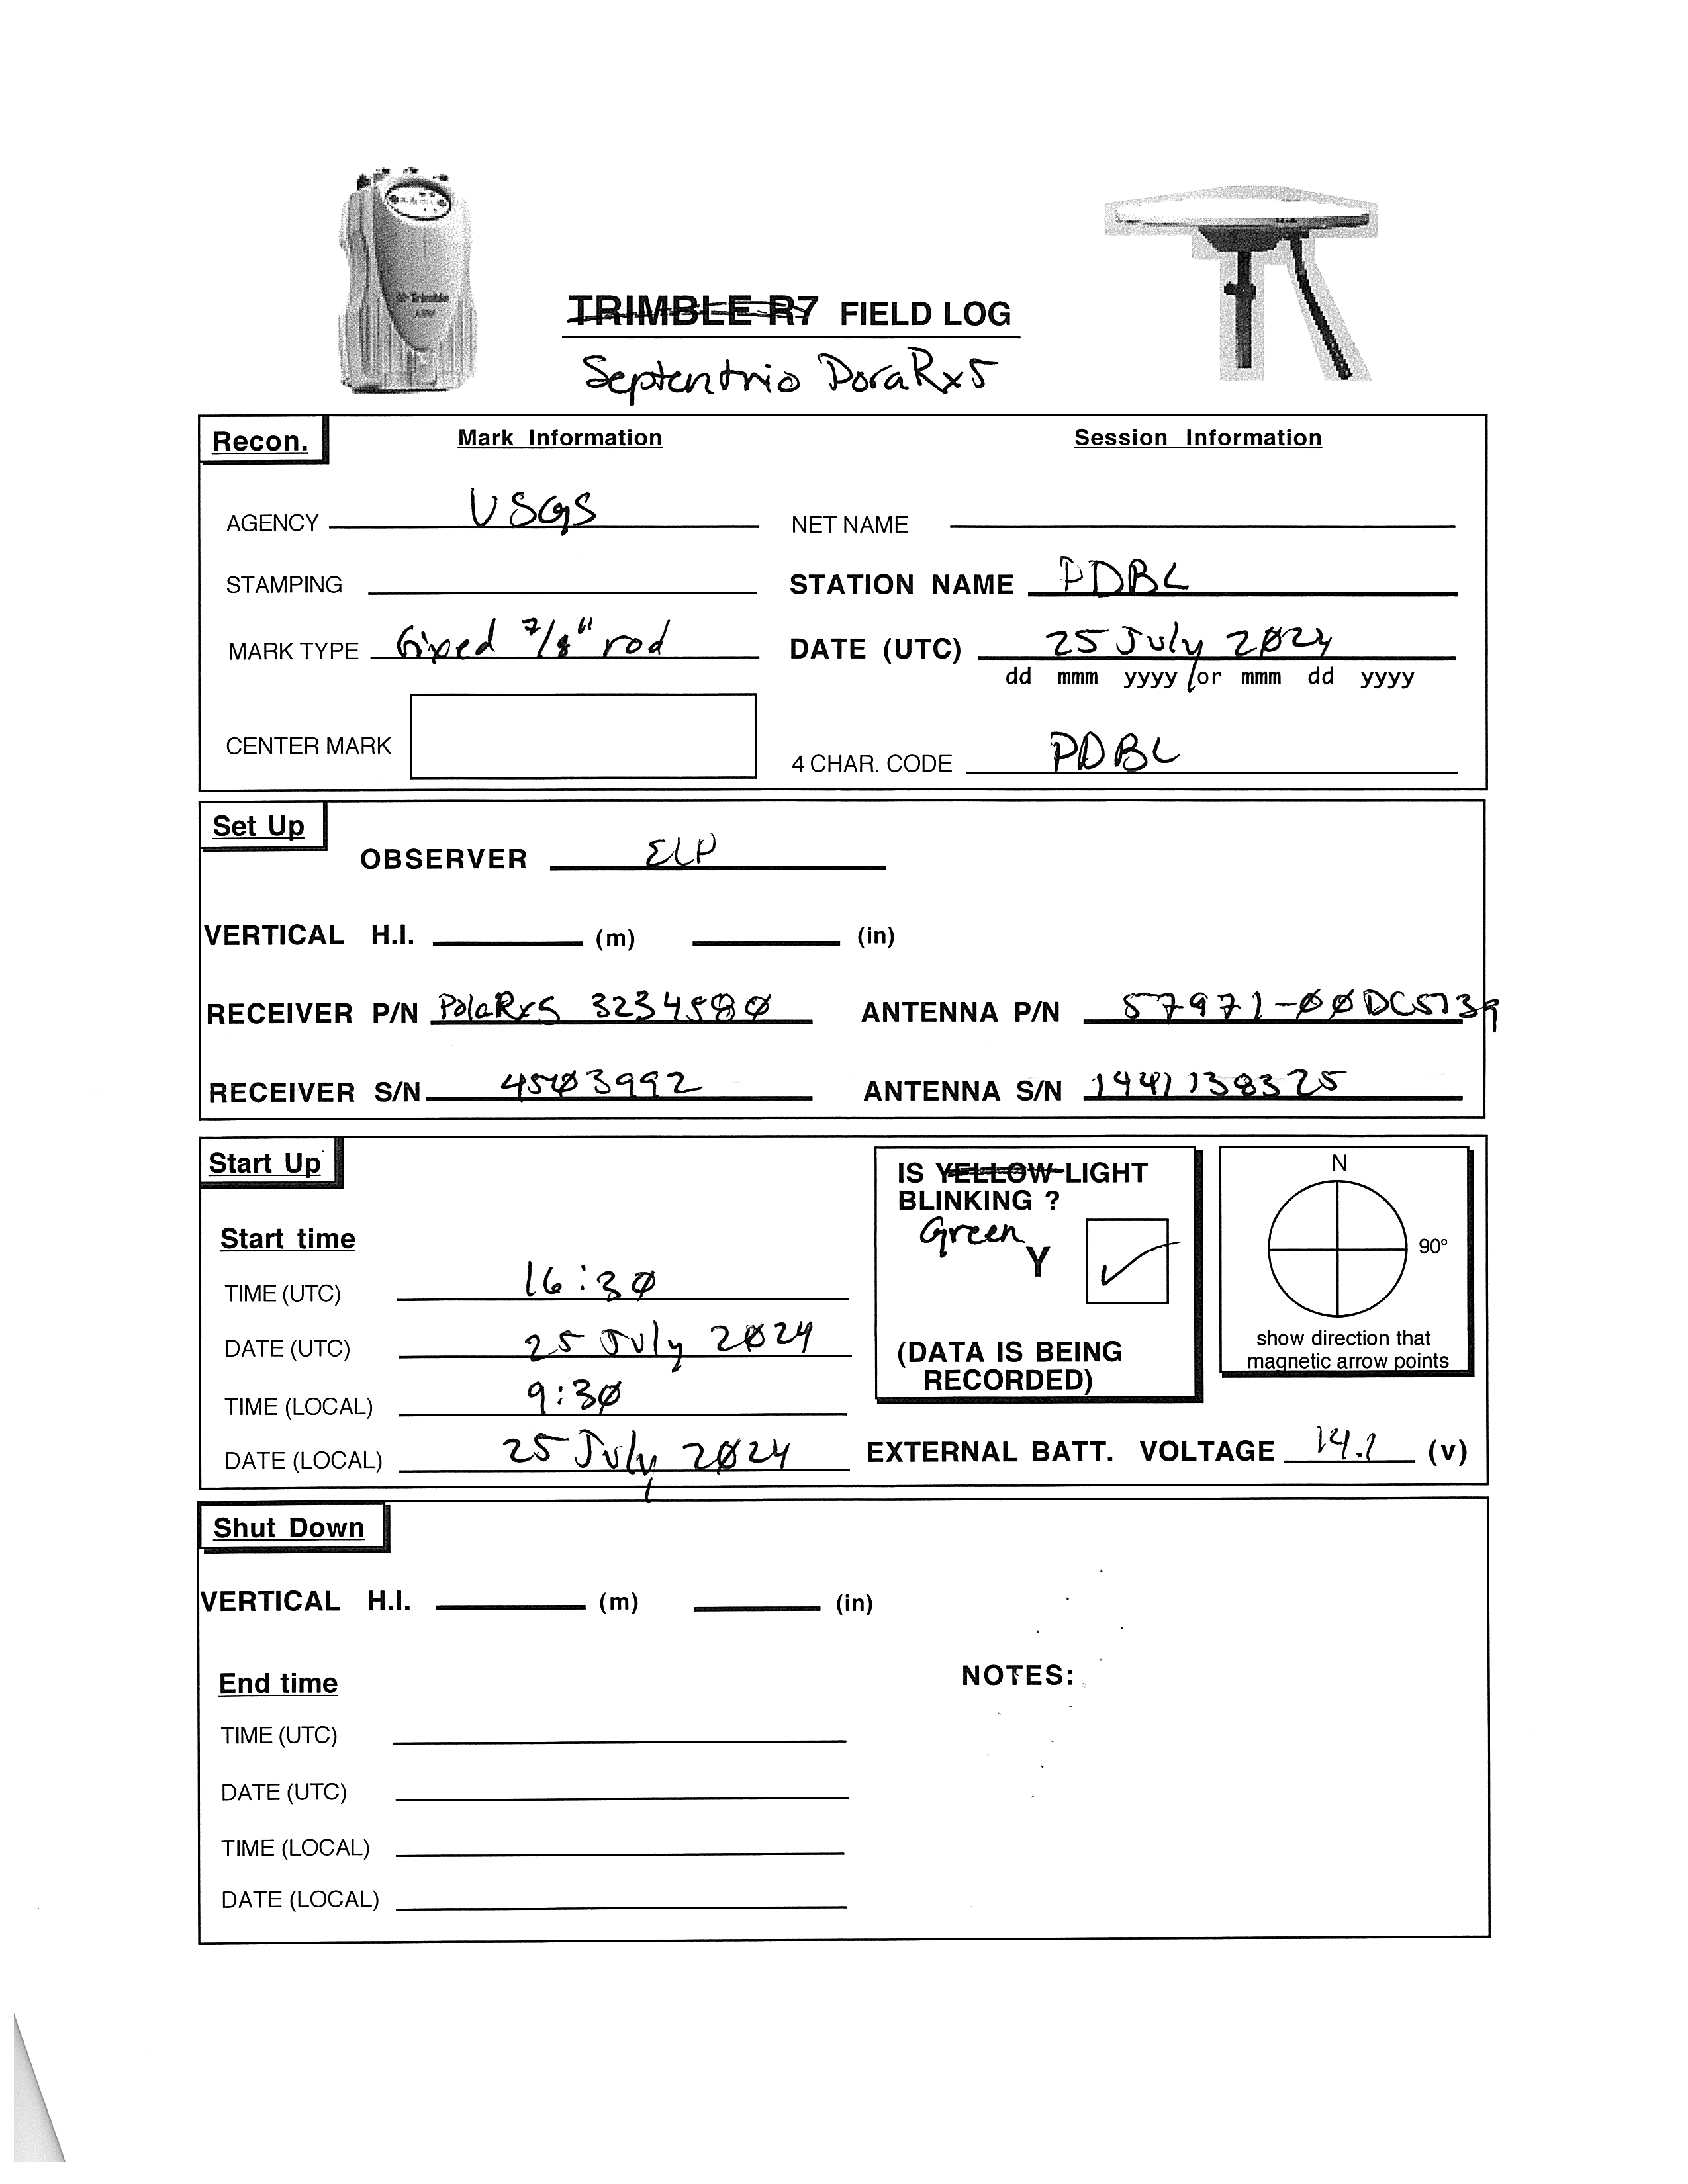 TRIMBLE R7 FIELD LOG
Septentrio PolaRx5
Recon.
Mark Information
Session Information
AGENCY USGS
NET NAME
STAMPING
STATION NAME PDBL
MARK TYPE Gixed 7/8" rod
DATE (UTC) 25 July 2024
dd mmm yyyy / or mmm dd yyyy
CENTER MARK
4 CHAR. CODE PDBL
Set Up
OBSERVER ELP
VERTICAL H.I. (m) (in)
RECEIVER P/N PolaRx5 3234580
ANTENNA P/N 57971-00DC5139
RECEIVER S/N 4503992
ANTENNA S/N 1441138325
Start Up
IS YELLOW LIGHT
BLINKING ?
Green
Y ✓
(DATA IS BEING
RECORDED)
N
90°
show direction that
magnetic arrow points
Start time
TIME (UTC) 16:30
DATE (UTC) 25 July 2024
TIME (LOCAL) 9:30
DATE (LOCAL) 25 July 2024
EXTERNAL BATT. VOLTAGE 14.1 (v)
Shut Down
VERTICAL H.I. (m) (in)
End time
NOTES:
TIME (UTC)
DATE (UTC)
TIME (LOCAL)
DATE (LOCAL)